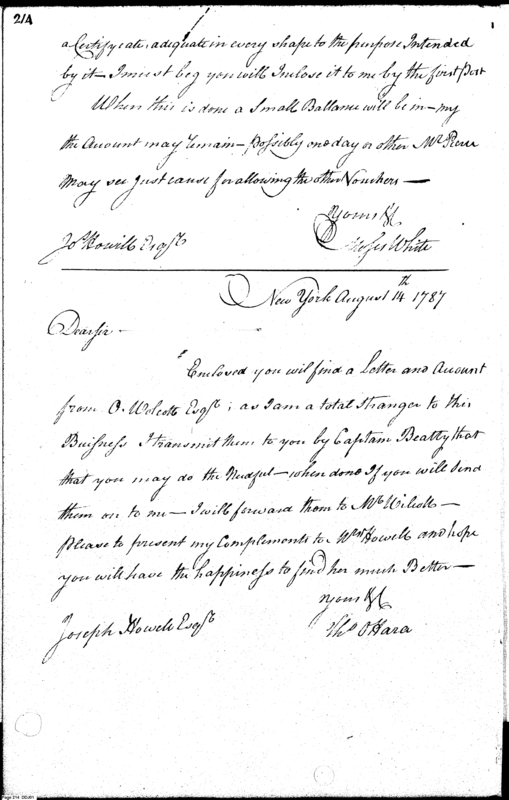 214
a Certifycate, adequate in every shape to the purpose Intended
by it - I must beg you will Inclose it to me by the first Post
When this is done a Small Ballance will be in - my
the Account may remain - Possibly one day or other Mr. Pierce
May see Just cause for allowing the other Vouchers -
Yours &c
Jos Howell Esqr
Moses White
New York August 14th 1787
Dear sir -
Enclosed you will find a Letter and Account
from O. Wolcott Esqr; as I am a total Stranger to this
Buisness I transmit them to you by Captain Beatty that
that you may do the Needful - when done If you will Send
them on to me - I will forward them to Mr Wolcott -
Please to present my Complements to Mrs Howell and hope
you will have the happiness to find her much Better -
Yours &c
Joseph Howell Esqr
Ths O Hara
Page 214